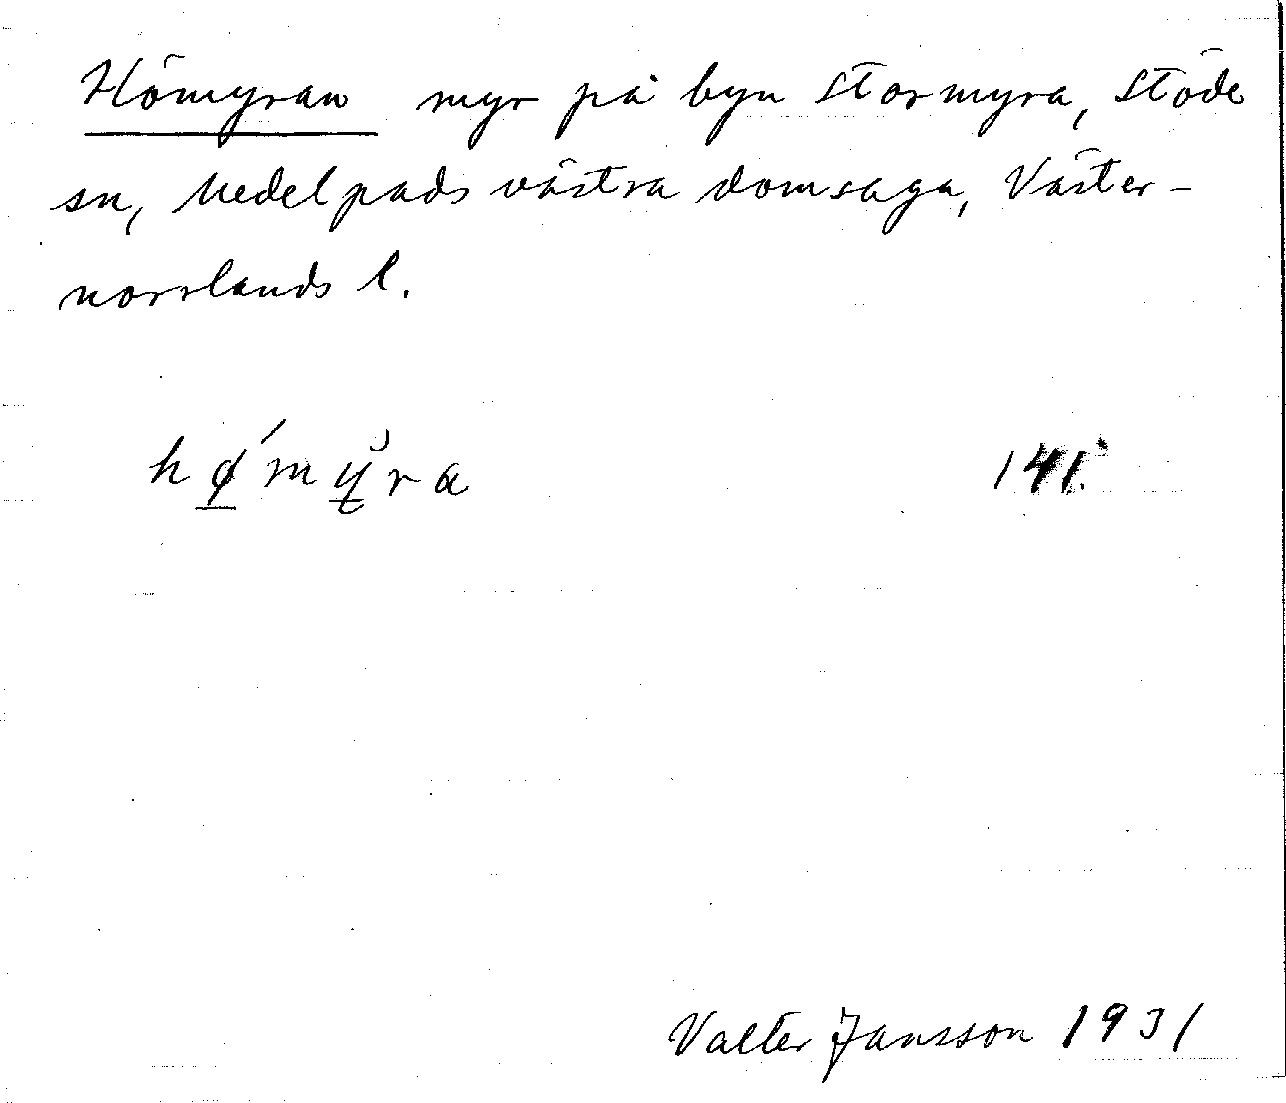 Hömyran myr på byn Stormyra, Stöde
sn, Medelpads västra domsaga, Väster-
norrlands l.
hø´myra 141.
Valter Jansson 1931